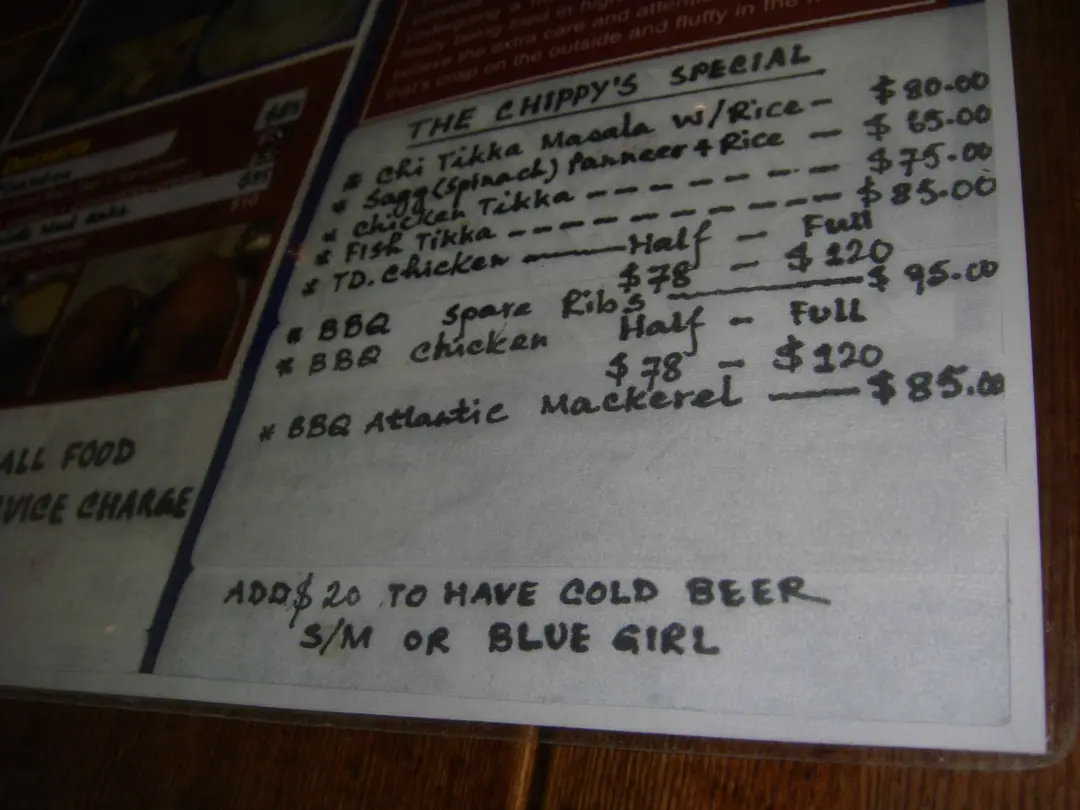 undergoing a
finally being fried in high
believe the extra care and attention
that's crisp on the outside and fluffy in the
THE CHIPPY'S SPECIAL
* Chi Tikka Masala w/Rice - $80.00
* Sagg (Spinach) Panneer + Rice - $65.00
* Chicken Tikka - - - - - - - - - $75.00
* Fish Tikka - - - - - - - - - - - $85.00
* TD. Chicken — Half - Full
$78 - $120
* BBQ Spare Ribs — $95.00
* BBQ Chicken Half - Full
$78 - $120
* BBQ Atlantic Mackerel — $85.00
ALL FOOD
VICE CHARGE
ADD $20 TO HAVE COLD BEER
S/M OR BLUE GIRL